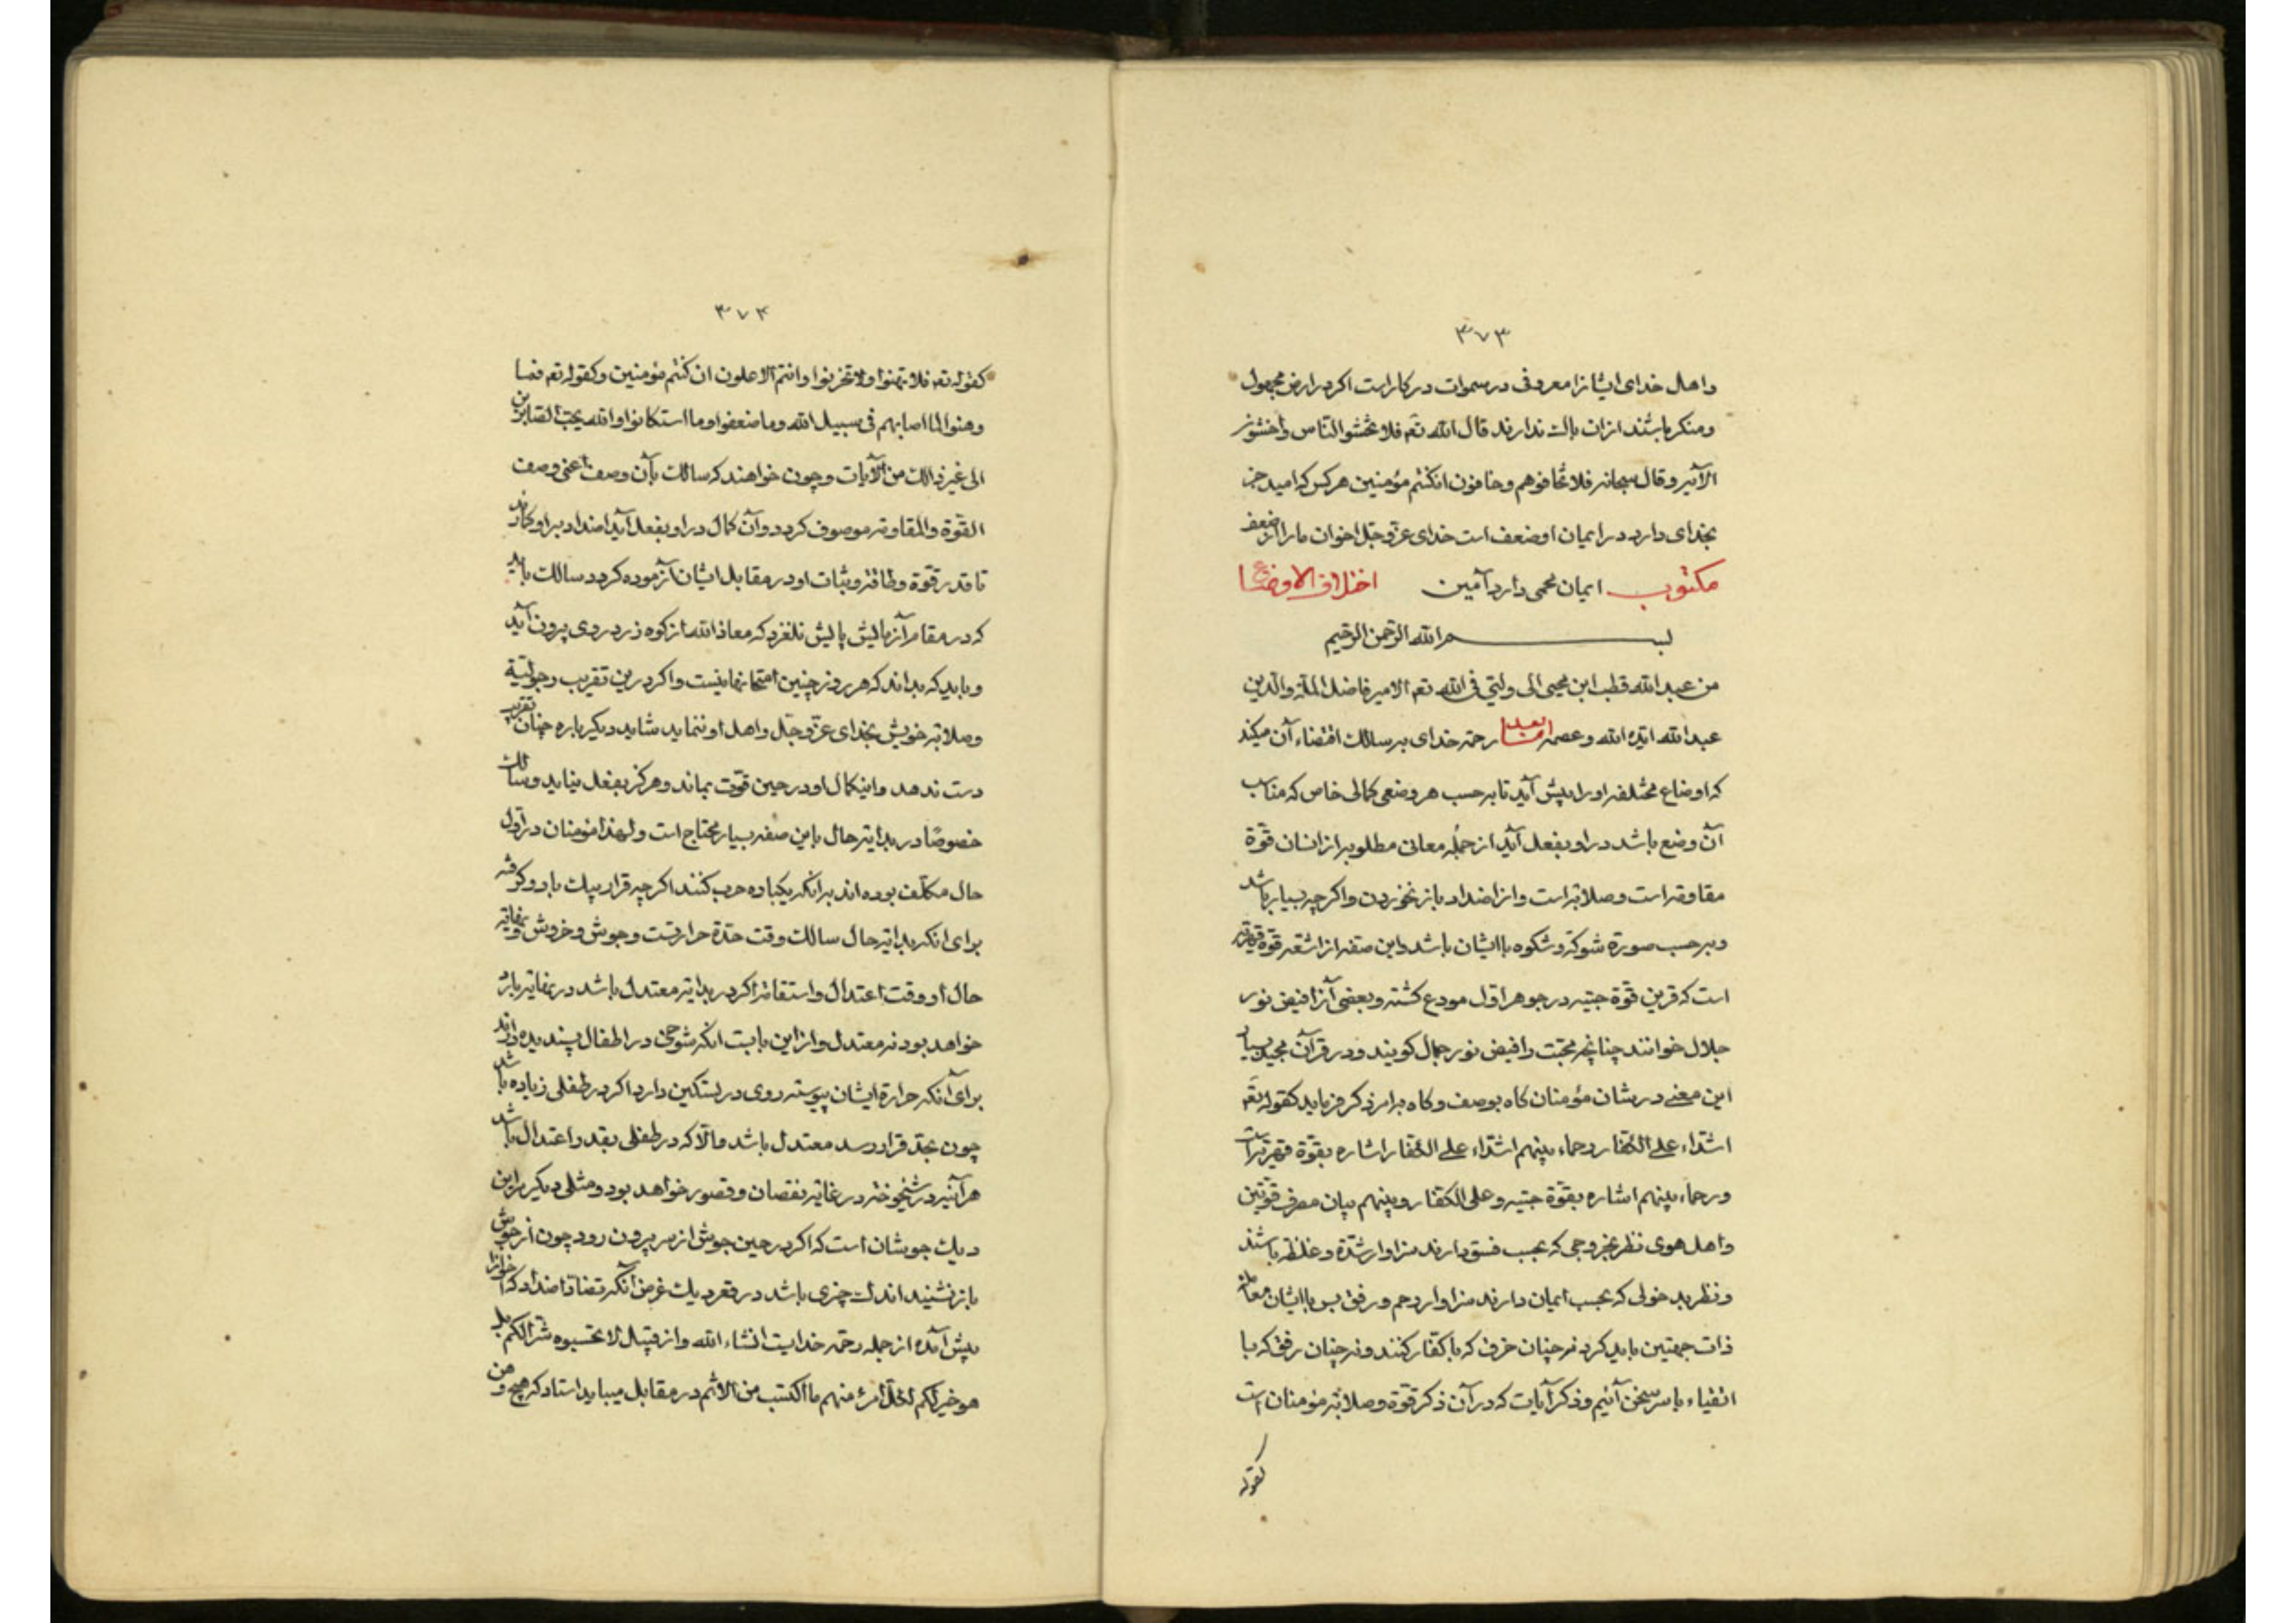 ۳۷۳
واهل خدای ایشانرا معروفی در سموات در کار است اکر در ارض مجهول
ومنکر باشند ازان باک ندارند قال الله تعم فلا تخشوا النّاس واخشون
الآیه وقال سبحانه فلا تخافوهم وخافون انکنتم مؤمنین هرکس که امید جز
بخدای دارد در ایمان او ضعف است خدای عزّ وجلّ اخوان ما را از ضعف
مکتوب ایمان محمی دارد آمین اختلاف الاوضاع
بسم الله الرّحمن الرّحیم
من عبد الله قطب ابن محیی الی ولیّی فی الله تعم الامیر فاضل الملّة والدّین
عبد الله ایّده الله وعصمه امّا بعد رحمة خدای بر سالک اقتضاء آن میکند
که اوضاع مختلفه او را پیش آید تا بر حسب هر وضعی کمالی خاص که مناسب
آن وضع باشد در او بفعل آید از جمله معانی مطلوبه از انسان قوّة
مقاومه است وصلابه است واز اضداد باز نخوردن واکرچه بسیار باشد
وبر حسب صورة شوکة وشکوه با ایشان باشد واین صفه از اشعه قوّة قهریه
است که قرین قوّة حبّیه در جوهر اول مودع کشته وبعضی آنرا فیض نور
جلال خوانند چنانچه محبّت را فیض نور جمال کویند ودر قرآن مجید بسیار
این معنے در شان مؤمنان کاه بوصف وکاه بامر ذکر فرماید کقوله تعم
اشدّاء علی الکفّار رحماء بینهم اشدّاء علی الکفّار اشاره بقوّة قهریّه است
ورحماء بینهم اشاره بقوّة حبّیه وعلی الکفّار وبینهم بیان مصرف قوّتین
واهل هوی نظر بخروجی که بحسب فسق دارند سزاوار شدّة وغلظه باشند
ونظر بدخولی که بحسب ایمان دارند سزاوار رحم ورفق پس با ایشان معامله
ذات جهتین باید کرد نه چنان خرق که با کفّار کنند ونه چنان رفق که با
اتقیاء با سر سخن آئیم وذکر آیات که در آن ذکر قوّة وصلابة مؤمنان است
کقوله
۳۷۴
کقوله تعم فلا تهنوا ولا تحزنوا وانتم الاعلون ان کنتم مؤمنین وکقوله تعم فما
وهنوا لما اصابهم فی سبیل الله وما ضعفوا وما استکانوا والله یحبّ الصّابرین
الی غیر ذالک من الآیات وچون خواهند که سالک بآن وصف اعنی وصف
القوّة والمقاومه موصوف کردد وآن کمال در او بفعل آید اضداد بر او کمارند
تا قدر قوّة وطاقة وثبات او در مقابل ایشان آزموده کردد سالک باید
که در مقام آزمایش پایش نلغزد که معاذ الله از کوه زر دردی بیرون آید
وباید که بداند که هر روز چنین امتحانها نیست واکر درین تقریب رجولیّة
وصلابة خویش بخدای عزّ وجلّ واهل او ننماید شاید دیکر باره چنان تقریب
دست ندهد واینکمال او در حین قوّت بماند وهرکز بفعل نیاید وسالک
خصوصًا در بدایة حال باین صفه بسیار محتاج است ولهذا مؤمنان در اول
حال مکلّف بوده اند بر آنکه یکباده حرب کنند اکرچه قرار بیک بادو کرفته
برای انکه بدایة حال سالک وقت حدّة حرارتست وجوش وخروش ونهایة
حال او وقت اعتدال واستقامه اکر در بدایة معتدل باشد در نهایة بارد
خواهد بود نه معتدل واز این بابست انکه شوخی در اطفال پسندیده دارند
برای آنکه حرارة ایشان پیوسته روی در تسکین دارد اکر در طفلی زیاده باشد
چون بحدّ قرار رسد معتدل باشد والّا که در طفلی بقدر اعتدال باشد
هرآینه در شیخوخة در غایة نقصان وقصور خواهد بود ومثلی دیکر براین
دیک جوشان است که اکر در حین جوش از سر بیرون رود چون از جوش
باز نشیند اندک چیزی باشد در قعر دیک غرض آنکه تضاد اضداد که اخوانرا
پیش آمده از جمله رحمة خدایست انشاء الله واز قبیل لا تحسبوه شرّا لکم بل
هو خیر لکم لکلّ امرئ منهم ما اکتسب من الاثم در مقابل میباید استاد که هیچ وهن